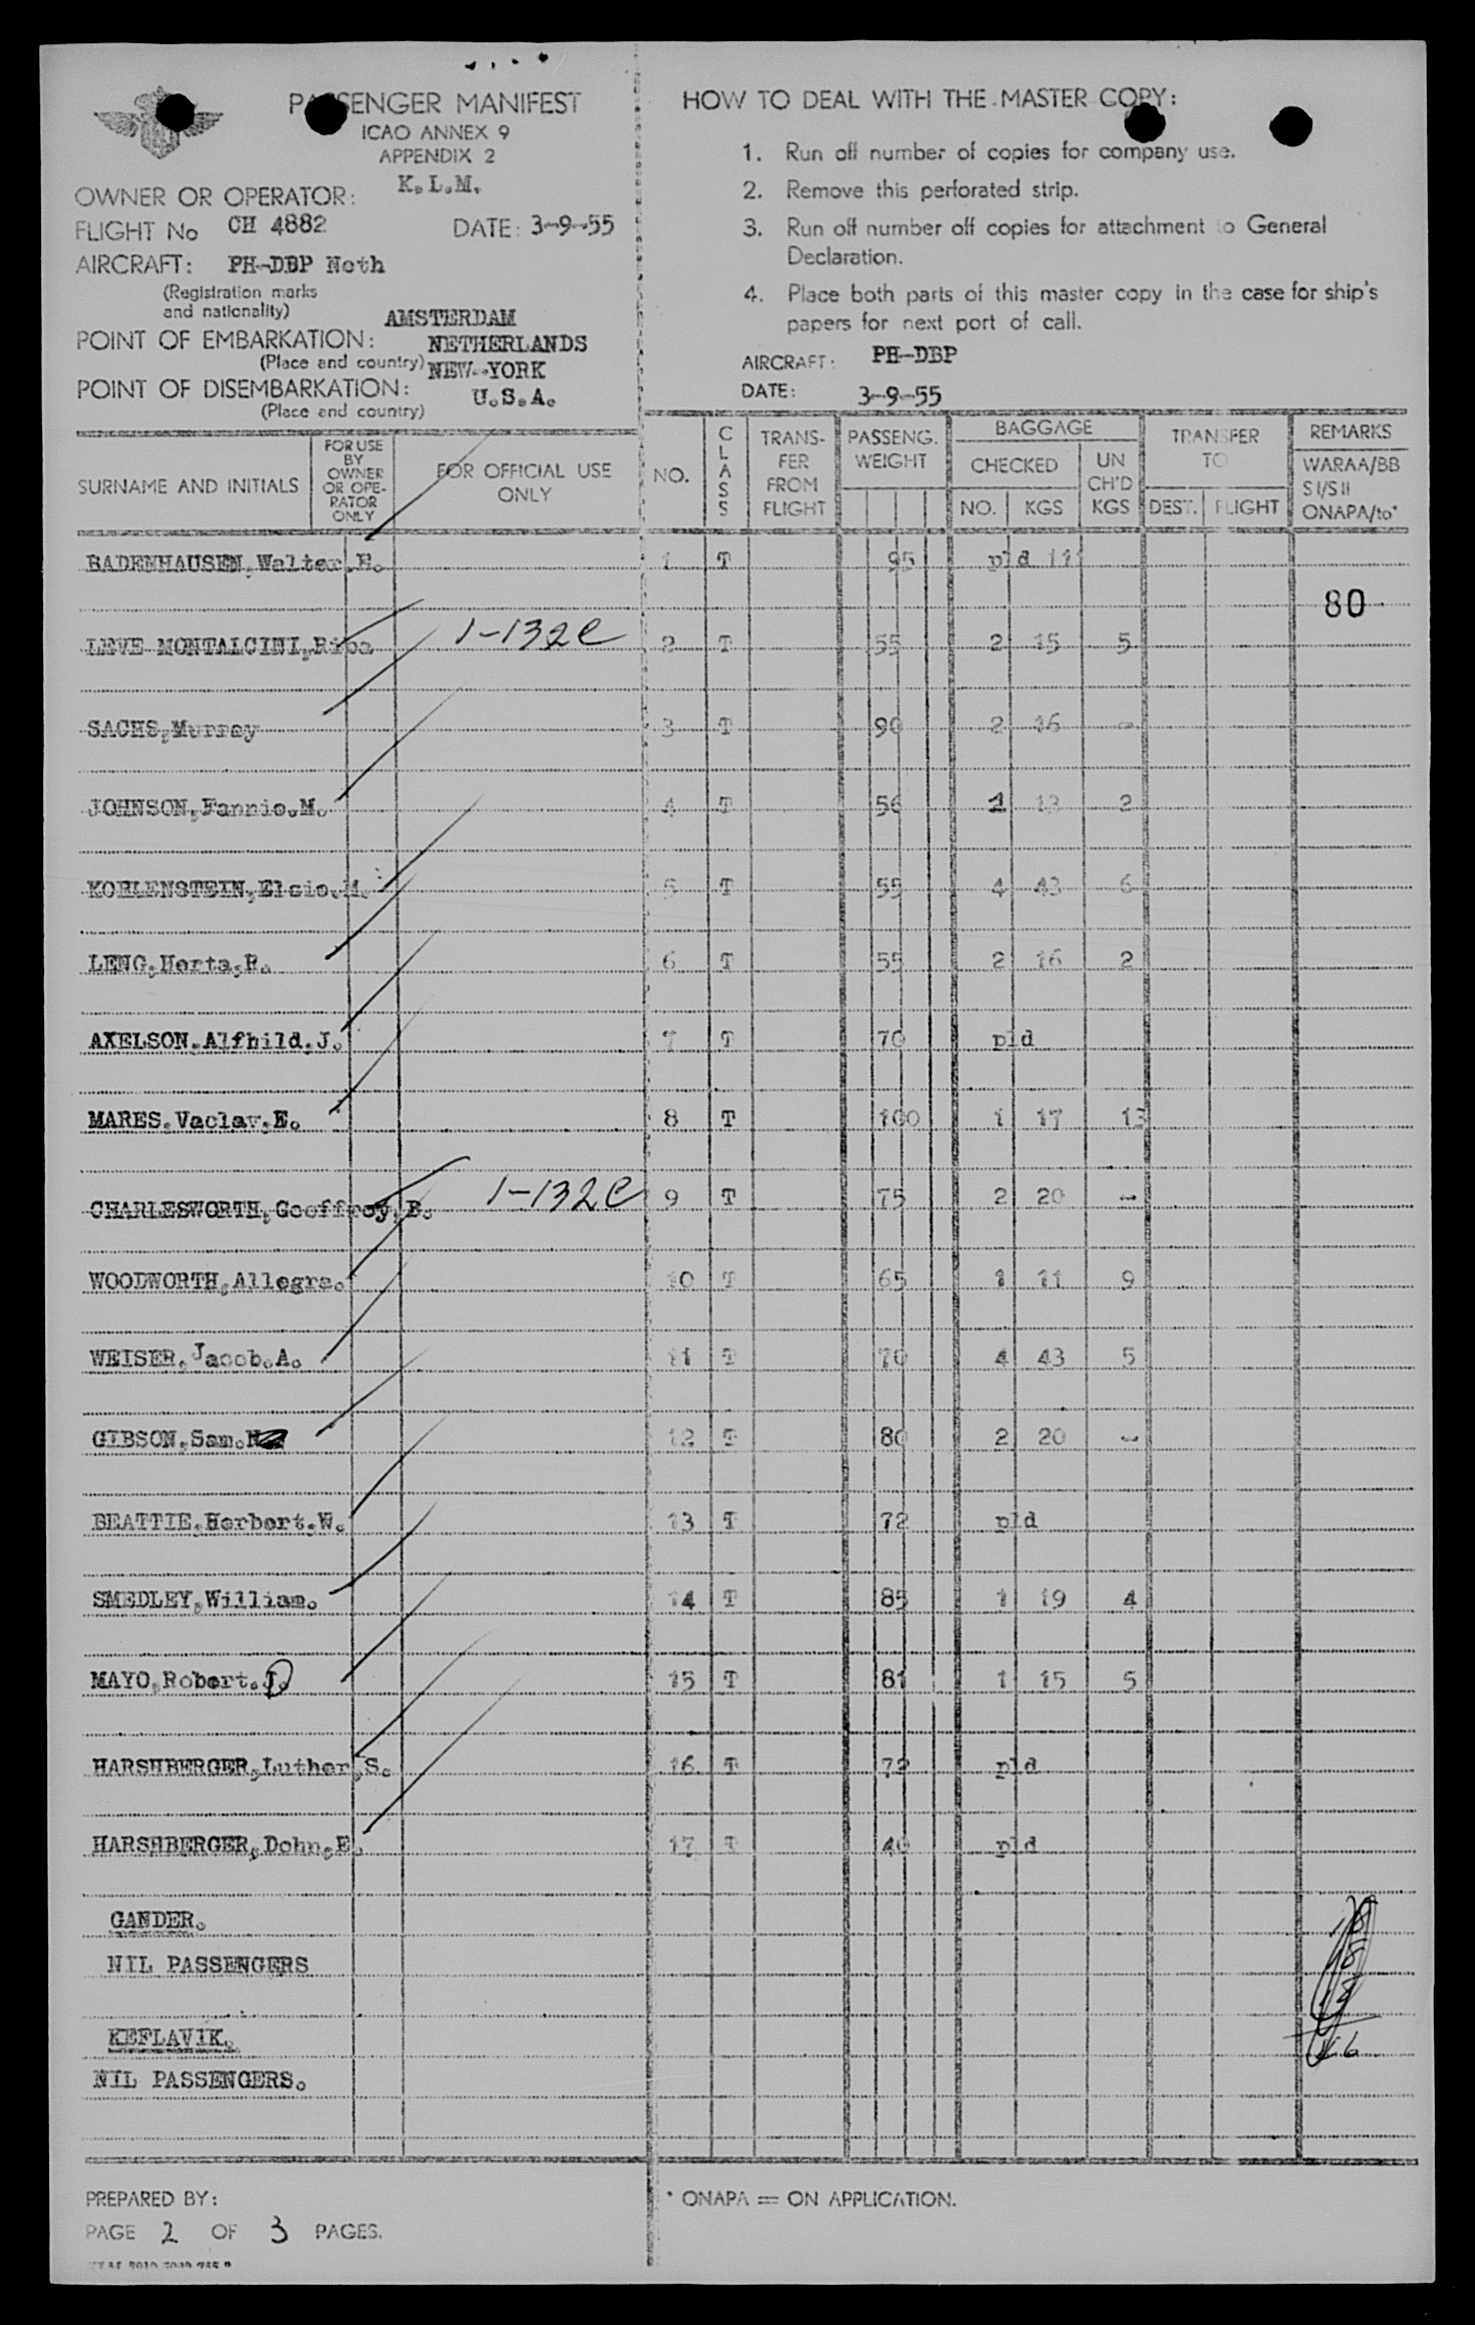 PASSENGER MANIFEST
ICAO ANNEX 9
APPENDIX 2
OWNER OR OPERATOR: K.L.M.
FLIGHT No CH 4882 DATE: 3-9-55
AIRCRAFT: PH-DBP Neth
(Registration marks
and nationality)
POINT OF EMBARKATION: AMSTERDAM
(Place and country) NETHERLANDS
POINT OF DISEMBARKATION: NEW-YORK
(Place and country) U.S.A.
HOW TO DEAL WITH THE MASTER COPY:
1. Run off number of copies for company use.
2. Remove this perforated strip.
3. Run off number off copies for attachment to General
Declaration.
4. Place both parts of this master copy in the case for ship's
papers for next port of call.
AIRCRAFT: PH-DBP
DATE: 3-9-55
SURNAME AND INITIALS
FOR USE
BY
OWNER
OR OPE-
RATOR
ONLY
FOR OFFICIAL USE
ONLY
NO.
CLASS
TRANS-
FER
FROM
FLIGHT
PASSENG.
WEIGHT
BAGGAGE
CHECKED
NO. KGS
UN
CH'D
KGS
TRANSFER
TO
DEST. FLIGHT
REMARKS
WARAA/BB
SI/SII
ONAPA/to*
BADENHAUSEN,Walter,H. 1 T 95 pld 111
80
LEVE MONTALCINI,Rita 1-132C 2 T 55 2 15 5
SACHS,Murray 3 T 90 2 16 -
JOHNSON,Fannie.M. 4 T 56 1 13 2
KOHLENSTEIN,Elsie.M. 5 T 55 4 43 6
LENG,Herta,R. 6 T 55 2 16 2
AXELSON.Alfhild.J. 7 T 70 pld
MARES.Vaclav.E. 8 T 100 1 17 13
CHARLESWORTH,Geoffrey,B. 1-132C 9 T 75 2 20 -
WOODWORTH,Allegra. 10 T 65 1 11 9
WEISER,Jacob.A. 11 T 70 4 43 5
GIBSON,Sam. 12 T 80 2 20 -
BEATTIE.Herbert.W. 13 T 72 pld
SMEDLEY,William. 14 T 85 1 19 4
MAYO,Robert.J. 15 T 81 1 15 5
HARSHBERGER,Luther,S. 16 T 72 pld
HARSHBERGER,Dohn,E. 17 T 40 pld
GANDER.
NIL PASSENGERS
KEFLAVIK.
NIL PASSENGERS.
PREPARED BY:
PAGE 2 OF 3 PAGES.
* ONAPA = ON APPLICATION.